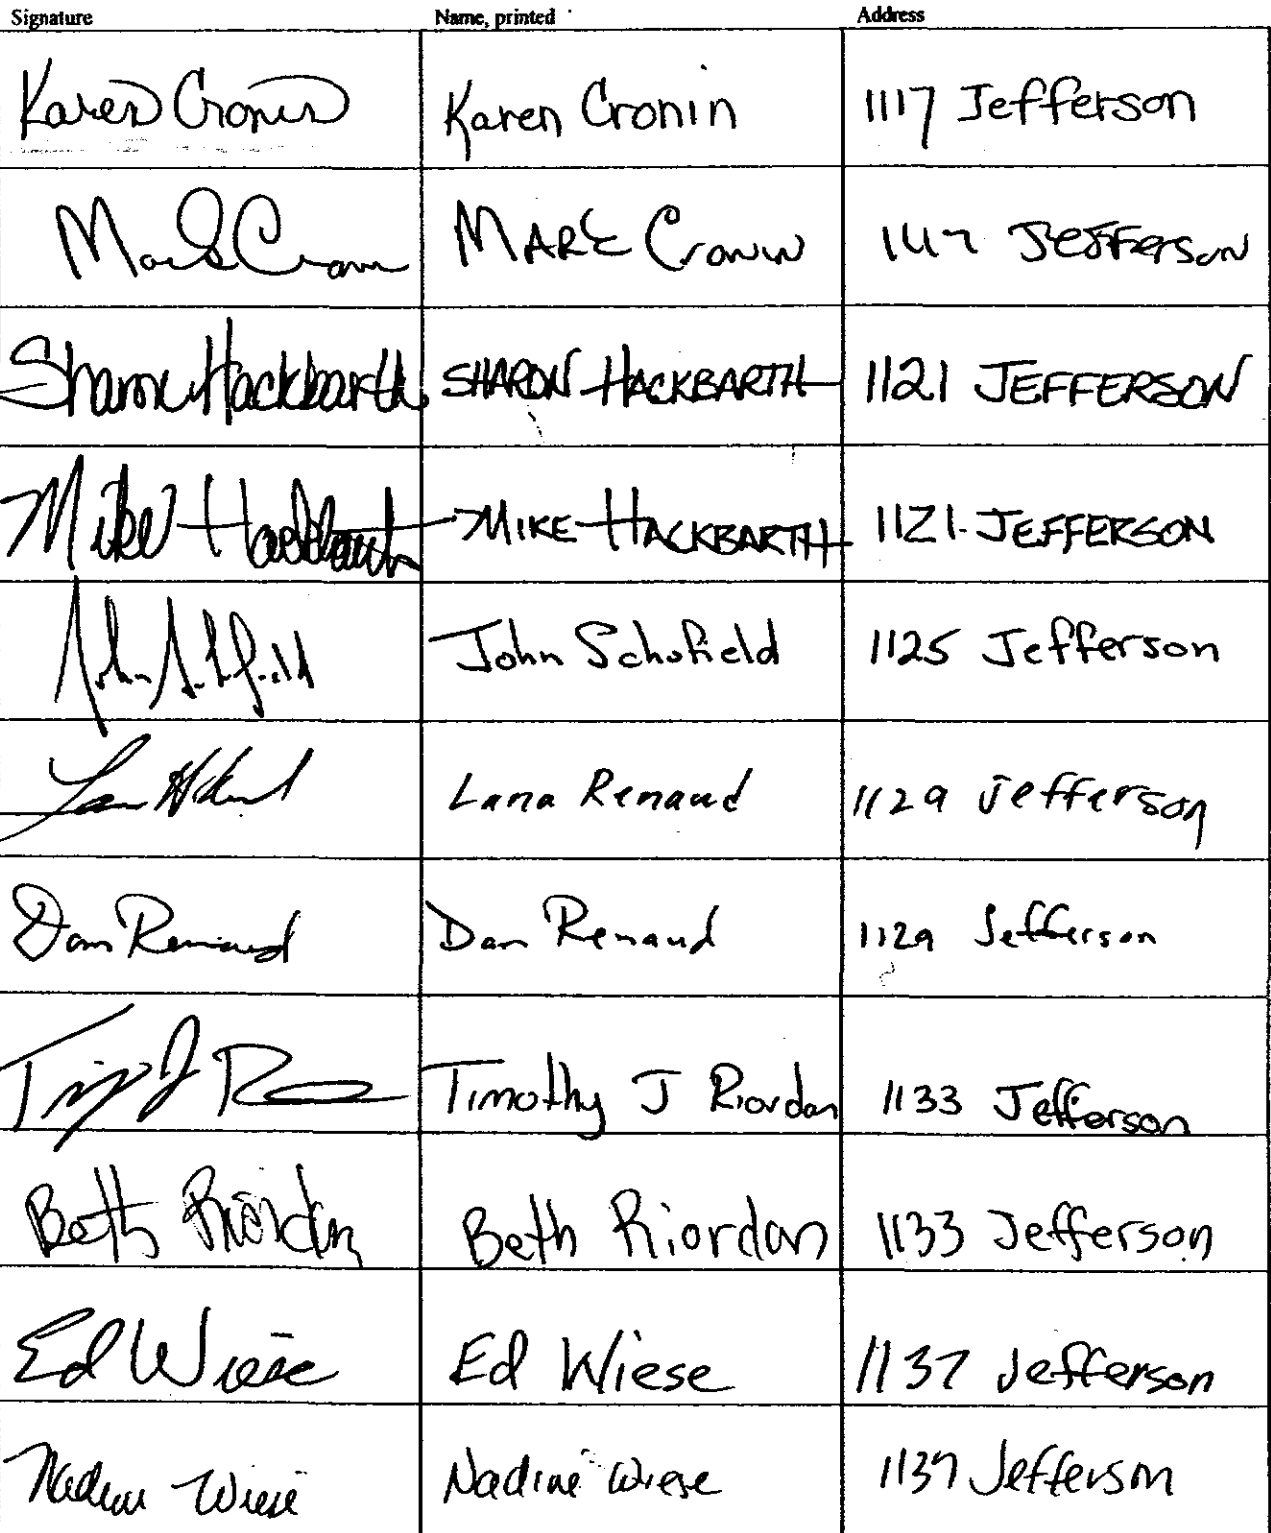 Signature Name, printed Address
Karen Cronin Karen Cronin 1117 Jefferson
Mark Cronin MARK Cronin 1117 Jefferson
Sharon Hackbarth SHARON HACKBARTH 1121 JEFFERSON
Mike Hackbarth MIKE HACKBARTH 1121 JEFFERSON
John Schofield John Schofield 1125 Jefferson
Lana Renaud 1129 Jefferson
Dan Renaud Dan Renaud 1129 Jefferson
Timothy J Riordan 1133 Jefferson
Beth Riordan Beth Riordan 1133 Jefferson
Ed Wiese Ed Wiese 1137 Jefferson
Nadine Wiese Nadine Wiese 1137 Jefferson